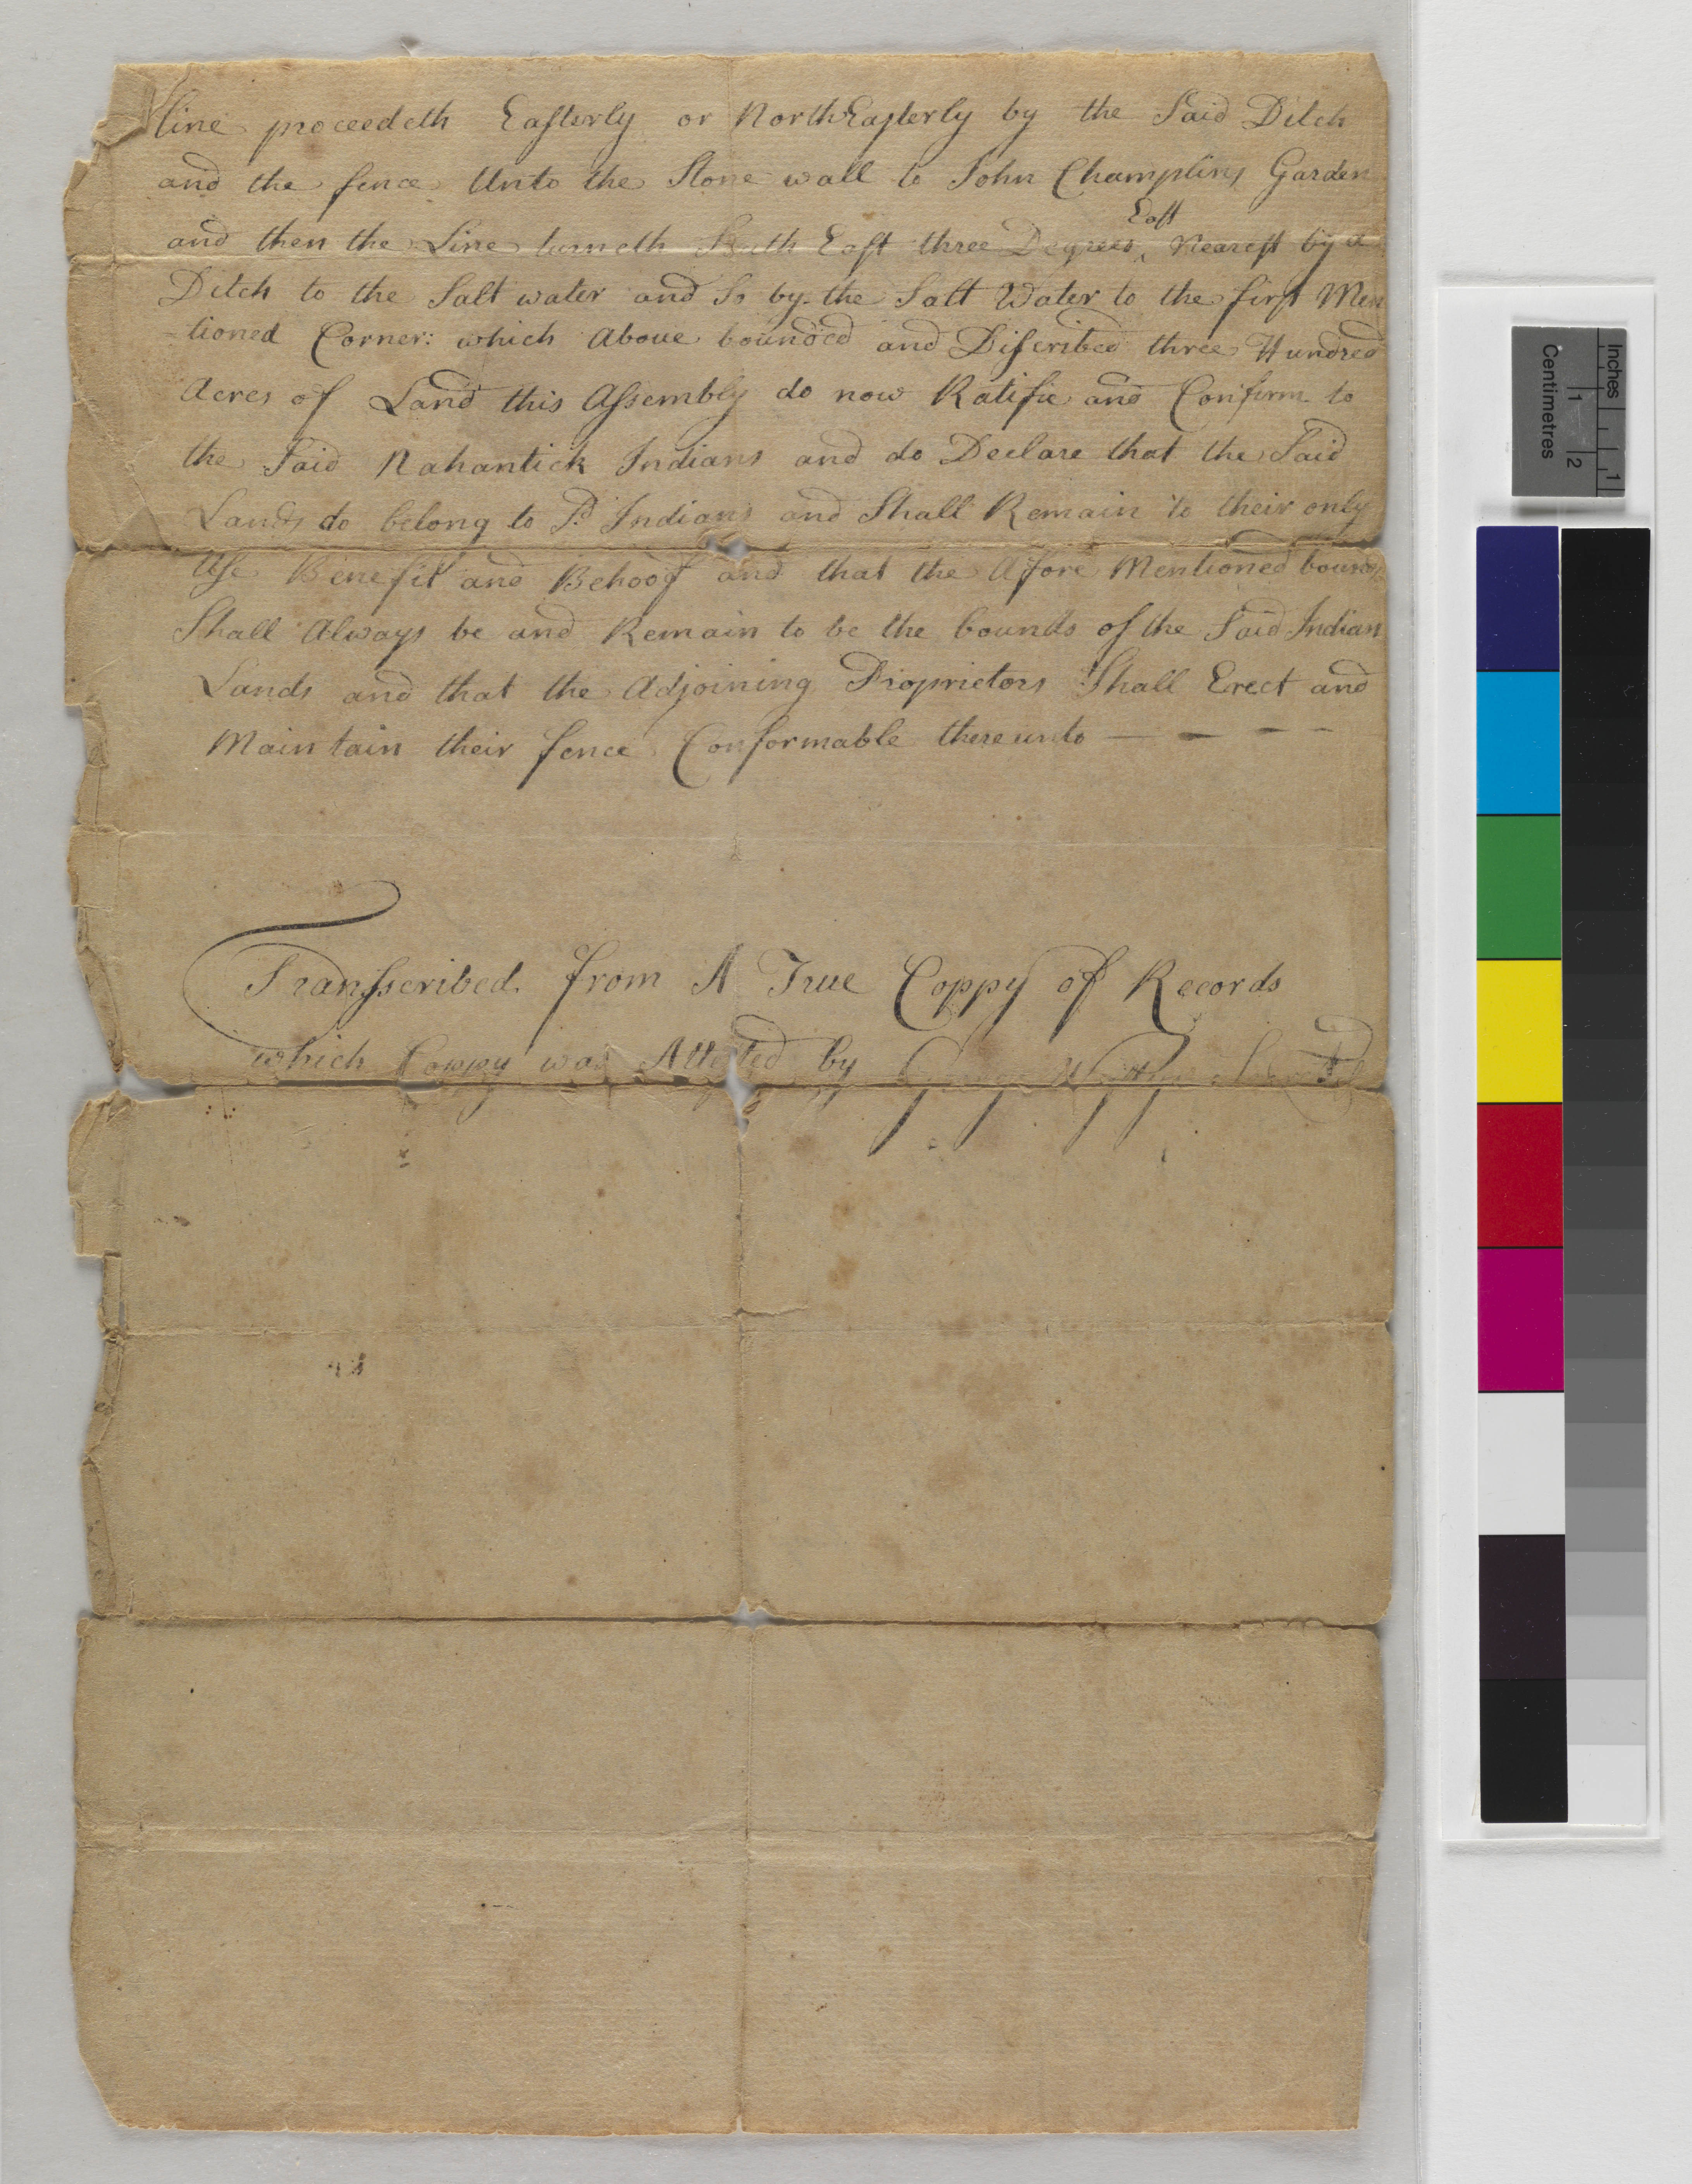 line proceedeth Easterly or NorthEasterly by the Said Ditch
and the fence Unto the Stone wall to John Champlins Garden
East
and then the Line turneth South East three Degrees ‸ Nearest by a
Ditch to the Salt water and So by the Salt Water to the first Men
-tioned Corner: which Above bounded and Discribed three Hundred
Acres of Land this Assembly do now Ratifie and Confirm to
the Said Nahantick Indians and do Declare that the Said
Lands do belong to Sd Indians and Shall Remain to their only
Use Benefit and Behoof and that the Afore Mentioned bounds
Shall Always be and Remain to be the bounds of the Said Indian
Lands and that the Adjoining Proprietors Shall Erect and
Maintain their fence Conformable thereunto — — — —
Transscribed from A True Coppy of Records
which Coppy was Attested by George Wyllys
Inches
1
Centimetres
1
2